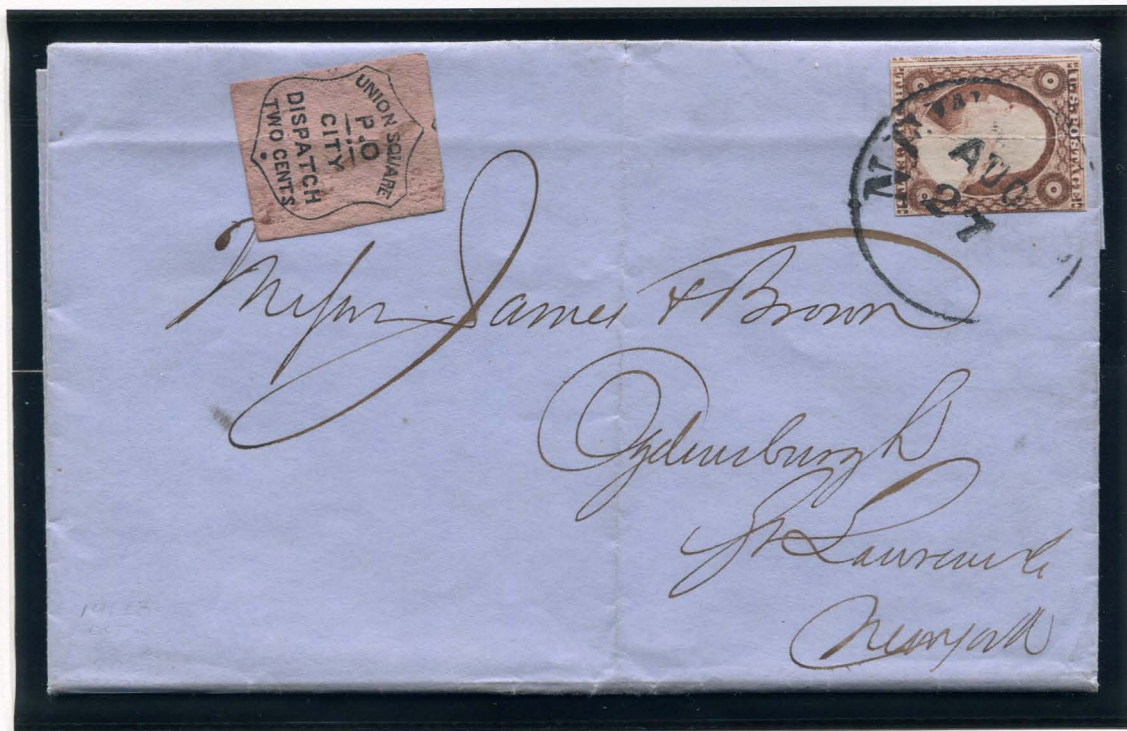 UNION SQUARE
P.O
CITY
DISPATCH
TWO CENTS
U.S. POSTAGE
AUG
27
Messrs James & Brown
Ogdensburgh
St Lawrence
New York